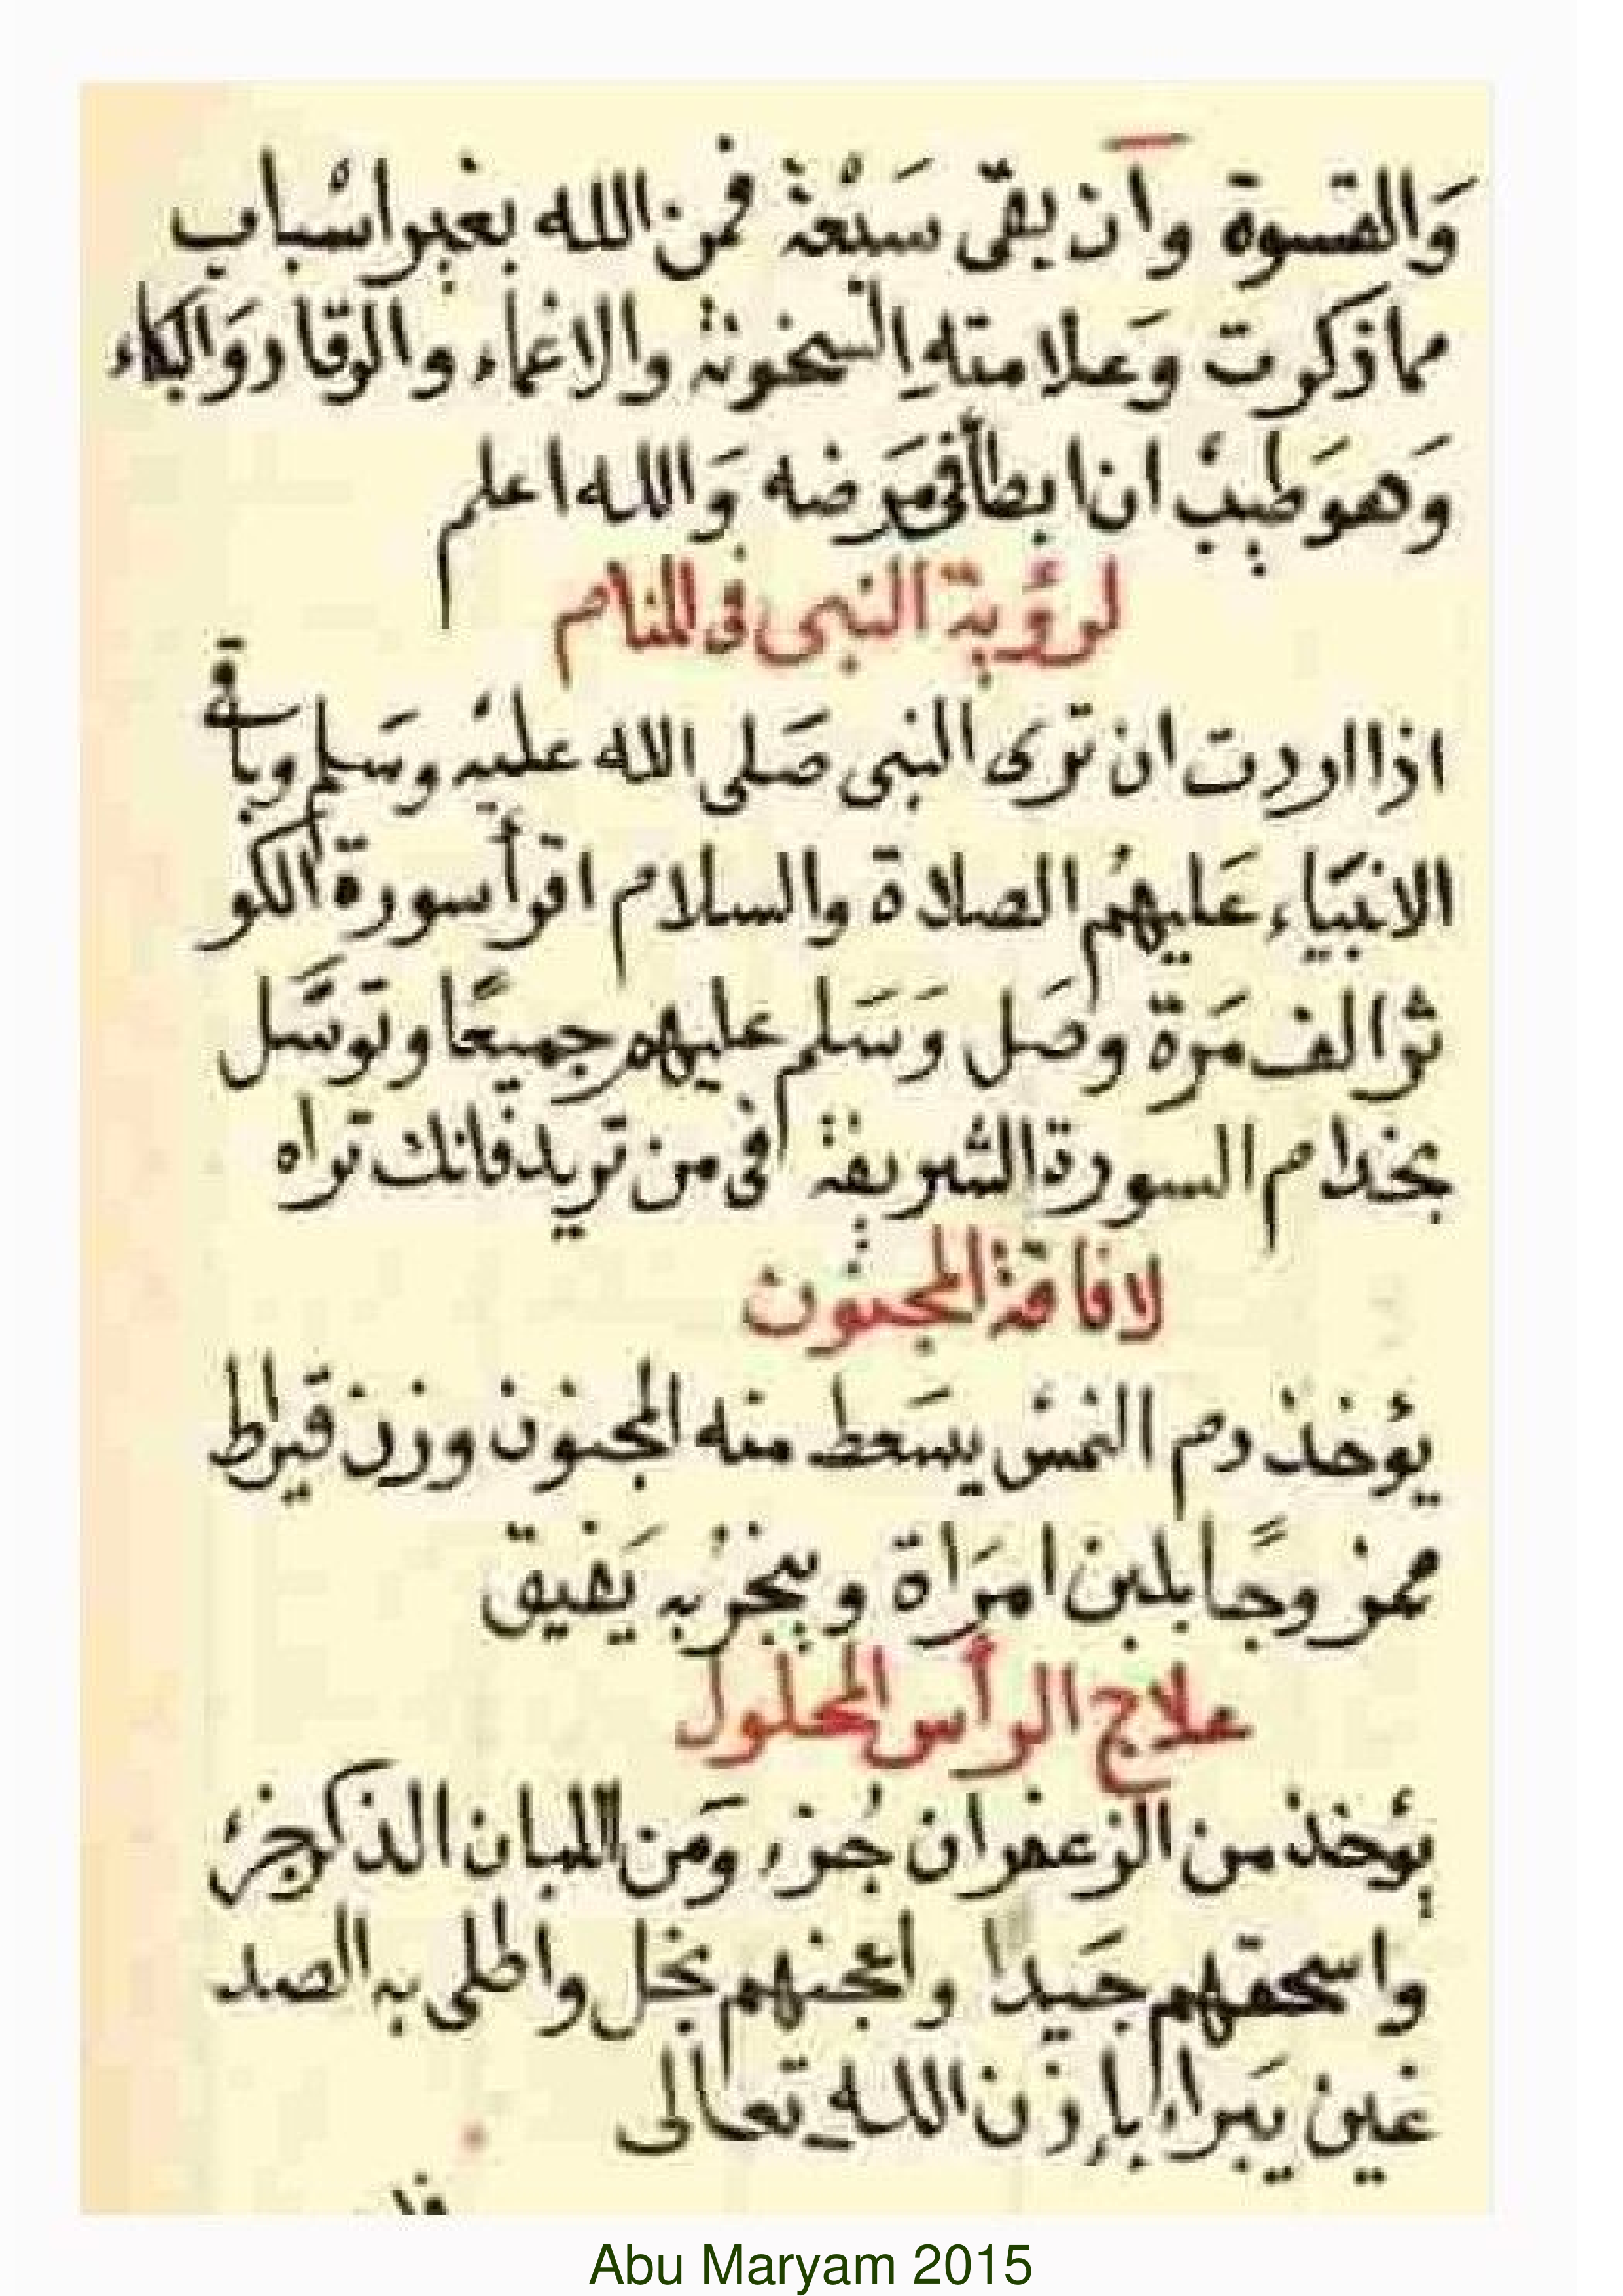 وَالقسوة وآن يبقى سَبْعَة فمن الله بغير اسْباب
مما ذكرت وَعلامته السخونة والاغماء والوقار وَالبكاء
وَهوَ طيبْ ان ابطأ فى مَرَضه وَالله اعلم
لرؤية النبى فى المنام
اذا اردت ان ترى النبى صَلى الله عليْه وسَلم وباقى
الانبيَاء عَليهم الصلاة والسلام اقرأ سورة الكو
ثر الف مَرَة وصَل وَسَلم عليهم جميعًا وتوسَّل
بخدام السورة الشريفة فى من تريد فانك تراه
لافاقة المجنون
يؤخذ دم النمس يسَعط منه المجنون وزن قيراط
ممزوجًا بلبن امرَاة ويبخرُ به يَفيق
علاج الرأس المحلول
يؤخذ من الزعفران جُزء وَمن اللبان الذكر جزء
واسحقهم جَيدا واعجنهم بخل واطلى به الصد
غين يَبرا بإذن الله تعالى
Abu Maryam 2015